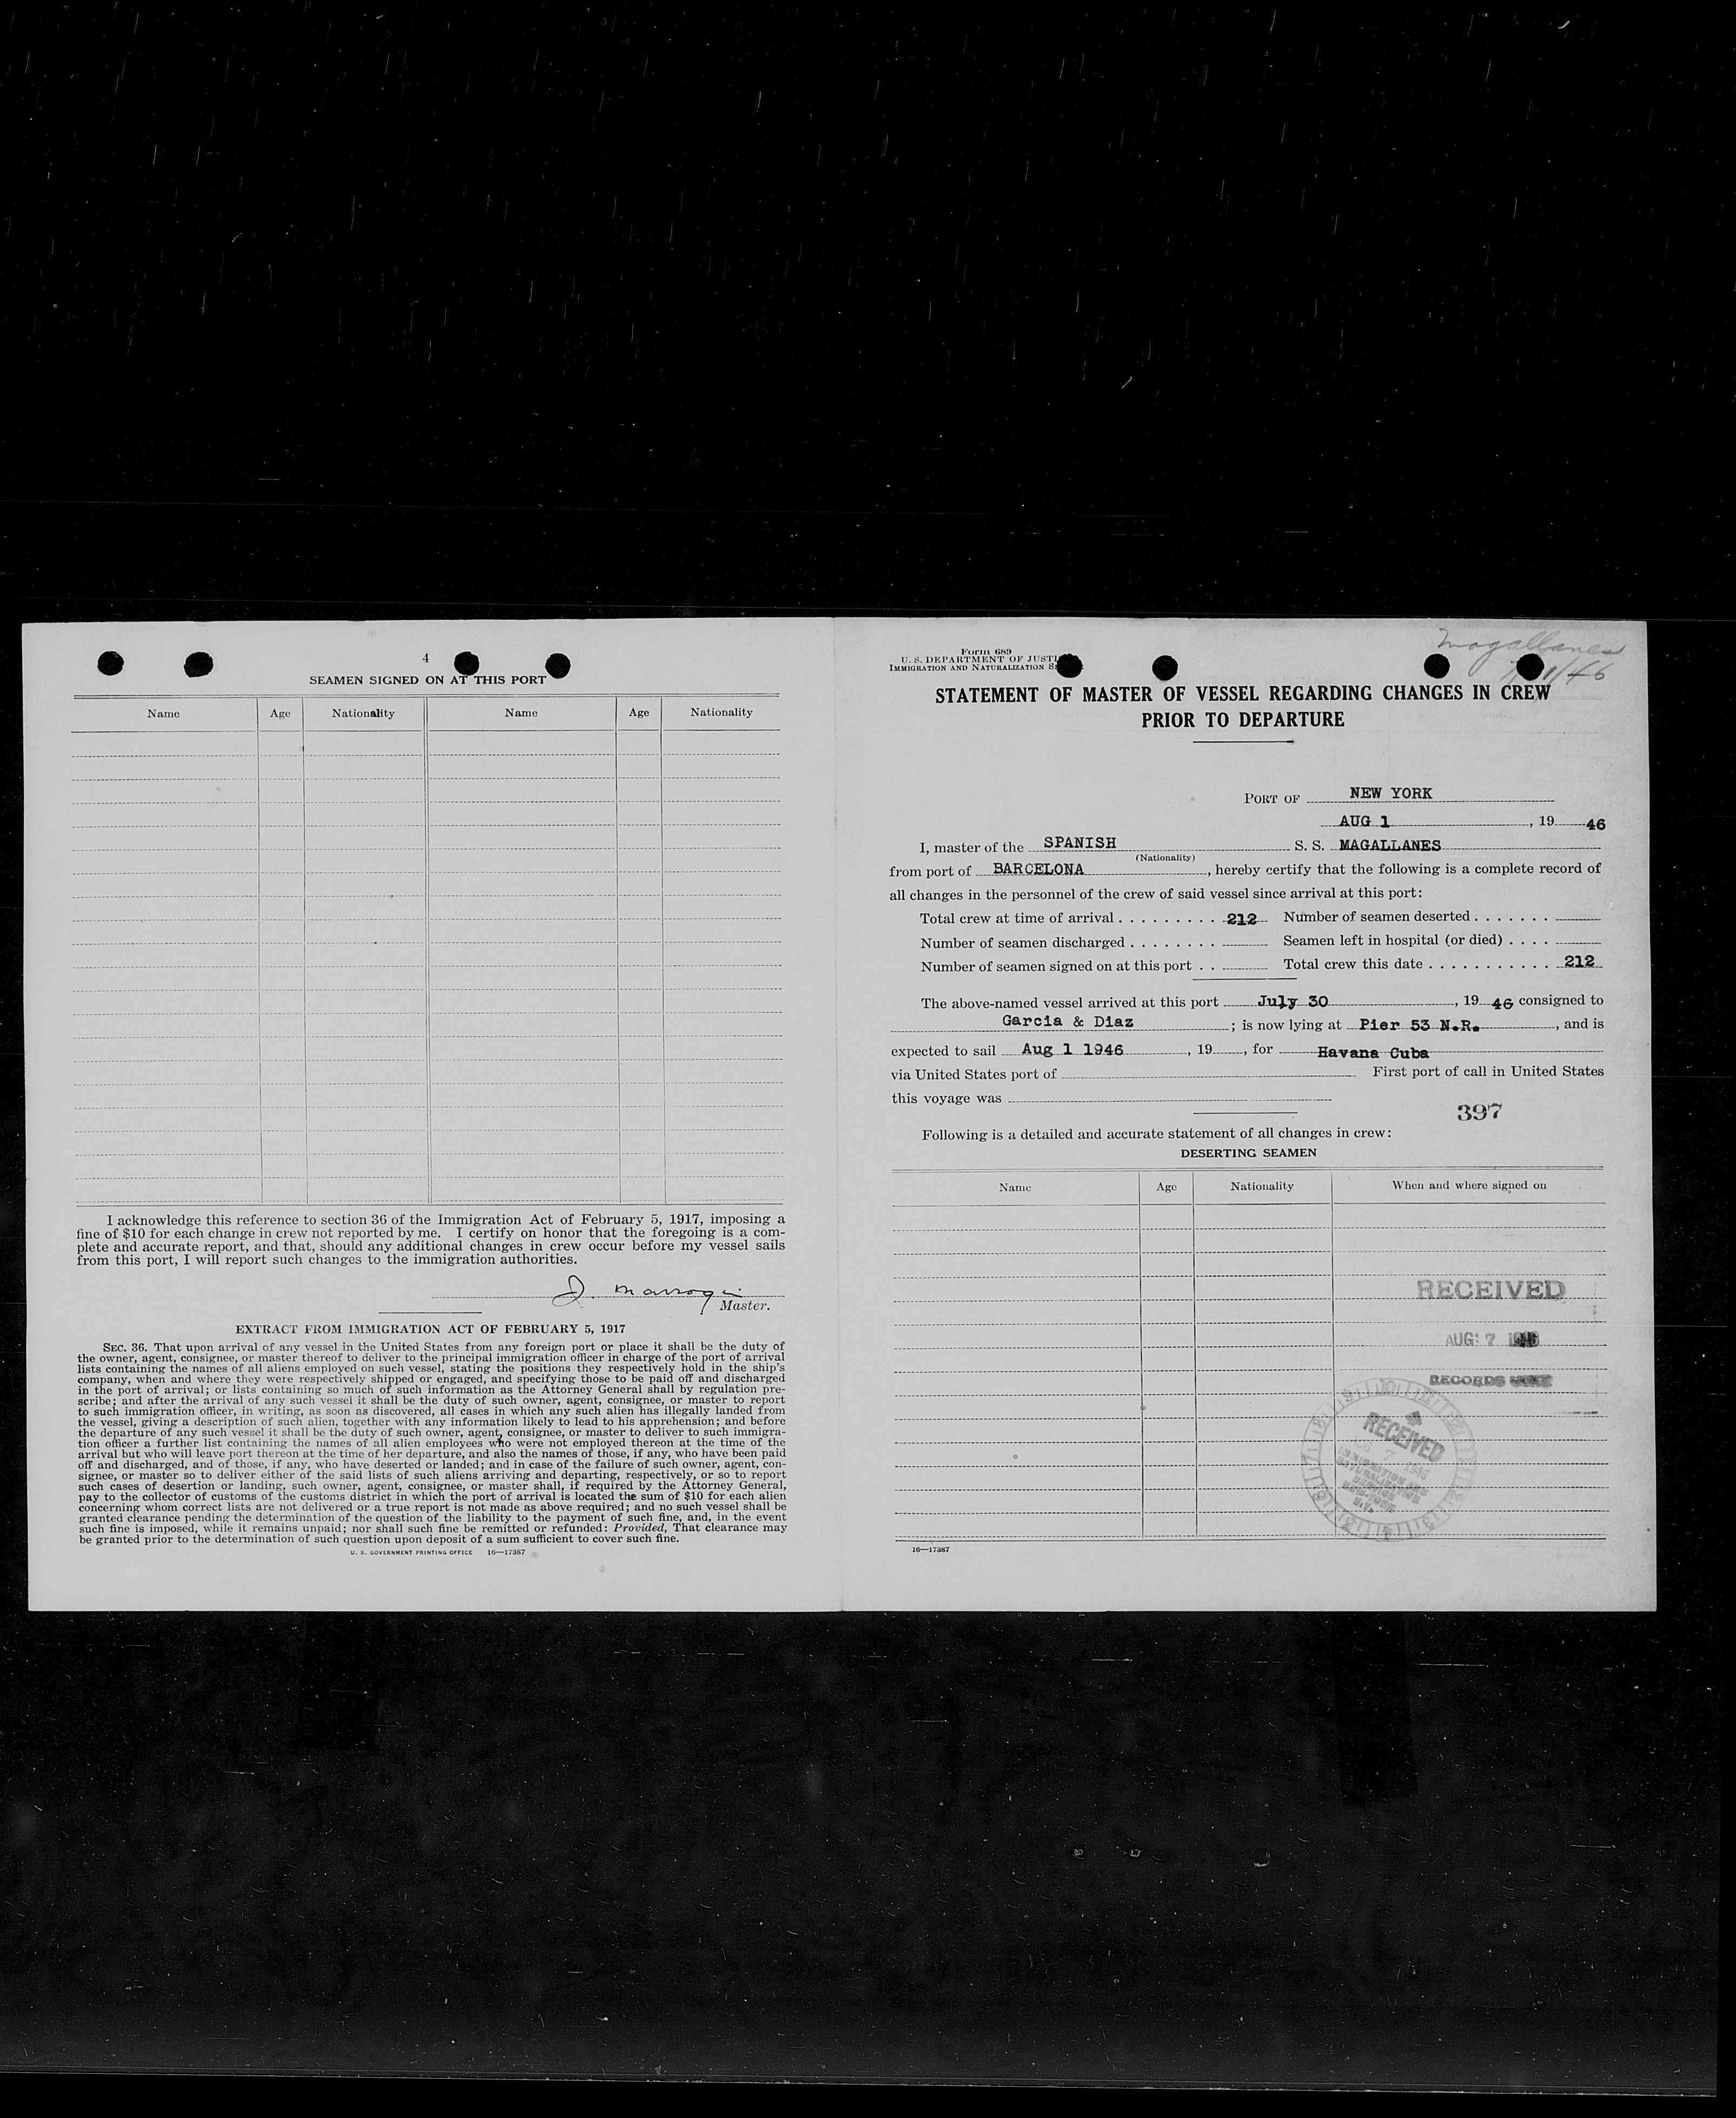 4
SEAMEN SIGNED ON AT THIS PORT
Name Age Nationality Name Age Nationality
I acknowledge this reference to section 36 of the Immigration Act of February 5, 1917, imposing a
fine of $10 for each change in crew not reported by me. I certify on honor that the foregoing is a com-
plete and accurate report, and that, should any additional changes in crew occur before my vessel sails
from this port, I will report such changes to the immigration authorities.
Master.
EXTRACT FROM IMMIGRATION ACT OF FEBRUARY 5, 1917
SEC. 36. That upon arrival of any vessel in the United States from any foreign port or place it shall be the duty of
the owner, agent, consignee, or master thereof to deliver to the principal immigration officer in charge of the port of arrival
lists containing the names of all aliens employed on such vessel, stating the positions they respectively hold in the ship's
company, when and where they were respectively shipped or engaged, and specifying those to be paid off and discharged
in the port of arrival; or lists containing so much of such information as the Attorney General shall by regulation pre-
scribe; and after the arrival of any such vessel it shall be the duty of such owner, agent, consignee, or master to report
to such immigration officer, in writing, as soon as discovered, all cases in which any such alien has illegally landed from
the vessel, giving a description of such alien, together with any information likely to lead to his apprehension; and before
the departure of any such vessel it shall be the duty of such owner, agent, consignee, or master to deliver to such immigra-
tion officer a further list containing the names of all alien employees who were not employed thereon at the time of the
arrival but who will leave port thereon at the time of her departure, and also the names of those, if any, who have been paid
off and discharged, and of those, if any, who have deserted or landed; and in case of the failure of such owner, agent, con-
signee, or master so to deliver either of the said lists of such aliens arriving and departing, respectively, or so to report
such cases of desertion or landing, such owner, agent, consignee, or master shall, if required by the Attorney General,
pay to the collector of customs of the customs district in which the port of arrival is located the sum of $10 for each alien
concerning whom correct lists are not delivered or a true report is not made as above required; and no such vessel shall be
granted clearance pending the determination of the question of the liability to the payment of such fine, and, in the event
such fine is imposed, while it remains unpaid; nor shall such fine be remitted or refunded: Provided, That clearance may
be granted prior to the determination of such question upon deposit of a sum sufficient to cover such fine.
U. S. GOVERNMENT PRINTING OFFICE 16—17387
Magallanes
Form 689
U. S. DEPARTMENT OF JUSTI
IMMIGRATION AND NATURALIZATION S
STATEMENT OF MASTER OF VESSEL REGARDING CHANGES IN CREW
PRIOR TO DEPARTURE
PORT OF NEW YORK
AUG 1, 19 46
I, master of the SPANISH S. S. MAGALLANES
(Nationality)
from port of BARCELONA, hereby certify that the following is a complete record of
all changes in the personnel of the crew of said vessel since arrival at this port:
Total crew at time of arrival . . . . . . . . . 212 Number of seamen deserted . . . . . . .
Number of seamen discharged . . . . . . . . Seamen left in hospital (or died) . . . .
Number of seamen signed on at this port . . Total crew this date . . . . . . . . . . . 212
The above-named vessel arrived at this port July 30, 19 46 consigned to
Garcia & Diaz; is now lying at Pier 53 N.R., and is
expected to sail Aug 1 1946, 19, for Havana Cuba
via United States port of First port of call in United States
this voyage was
397
Following is a detailed and accurate statement of all changes in crew:
DESERTING SEAMEN
Name Age Nationality When and where signed on
RECEIVED
AUG 7
RECORDS
RECEIVED
16—17387